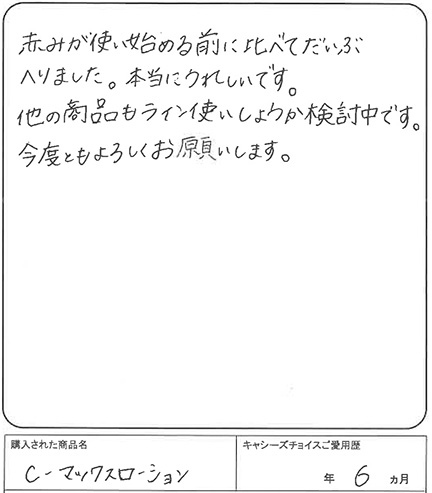 赤みが使い始める前に比べてだいぶ
へりました。本当にうれしいです。
他の商品もライン使いしようか検討中です。
今度ともよろしくお願いします。
購入された商品名
キャシーズチョイスご愛用歴
C-マックスローション
年 6 ヵ月